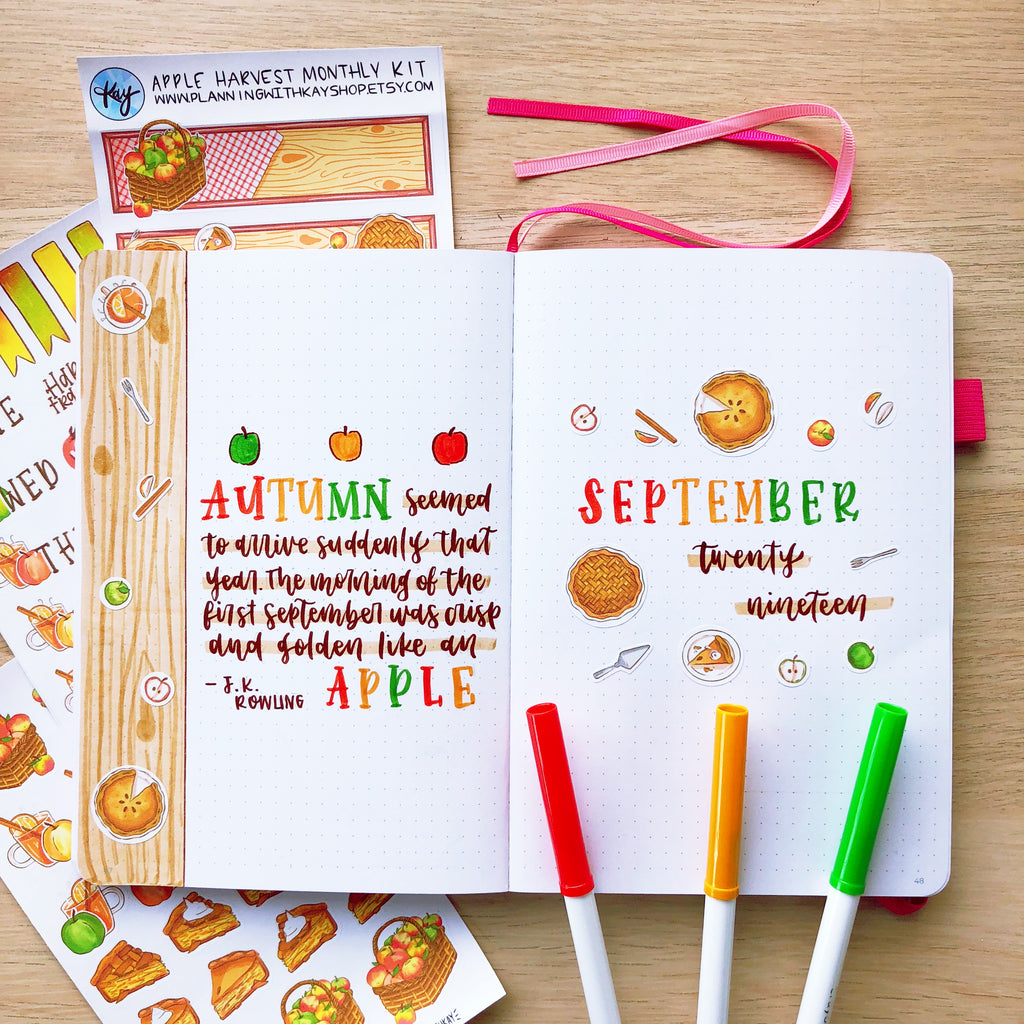 Kay
APPLE HARVEST MONTHLY KIT
WWW.PLANNINGWITHKAYSHOP.ETSY.COM
AUTUMN seemed
to arrive suddenly that
year. The morning of the
first september was crisp
and golden like an
APPLE
- J.K.
ROWLING
SEPTEMBER
twenty
nineteen
48